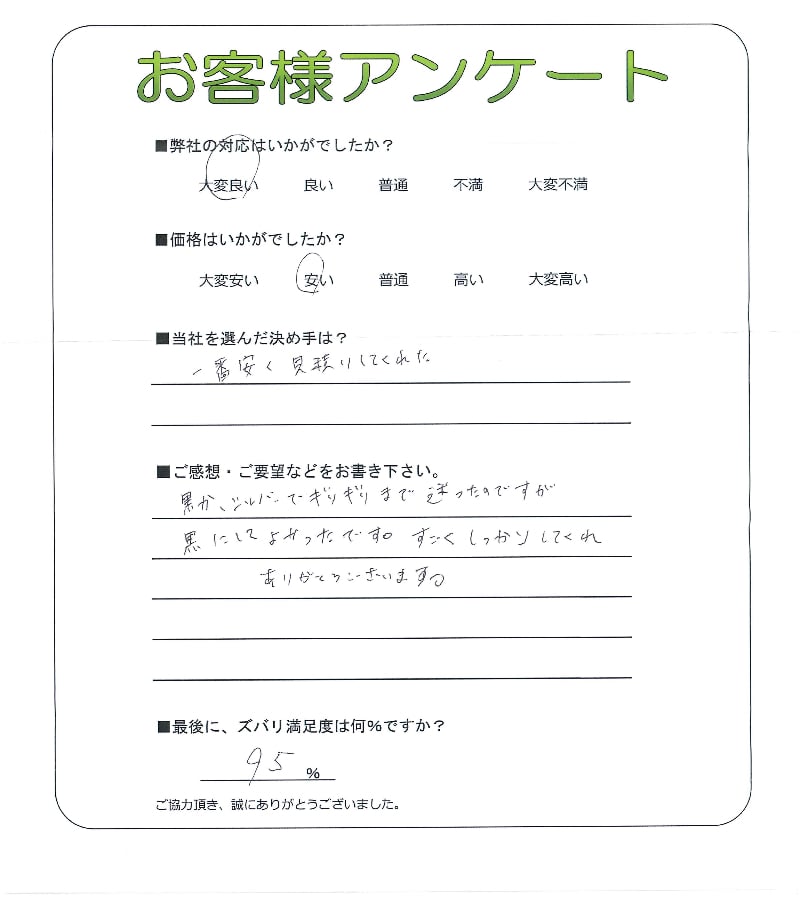 お客様アンケート
■弊社の対応はいかがでしたか？
大変良い 良い 普通 不満 大変不満
■価格はいかがでしたか？
大変安い 安い 普通 高い 大変高い
■当社を選んだ決め手は？
一番安く見積りしてくれた
■ご感想・ご要望などをお書き下さい。
黒か、シルバーでギリギリまで迷ったのですが
黒にしてよかったです。すごくしっかりしてくれ
ありがとうございます。
■最後に、ズバリ満足度は何％ですか？
95 ％
ご協力頂き、誠にありがとうございました。